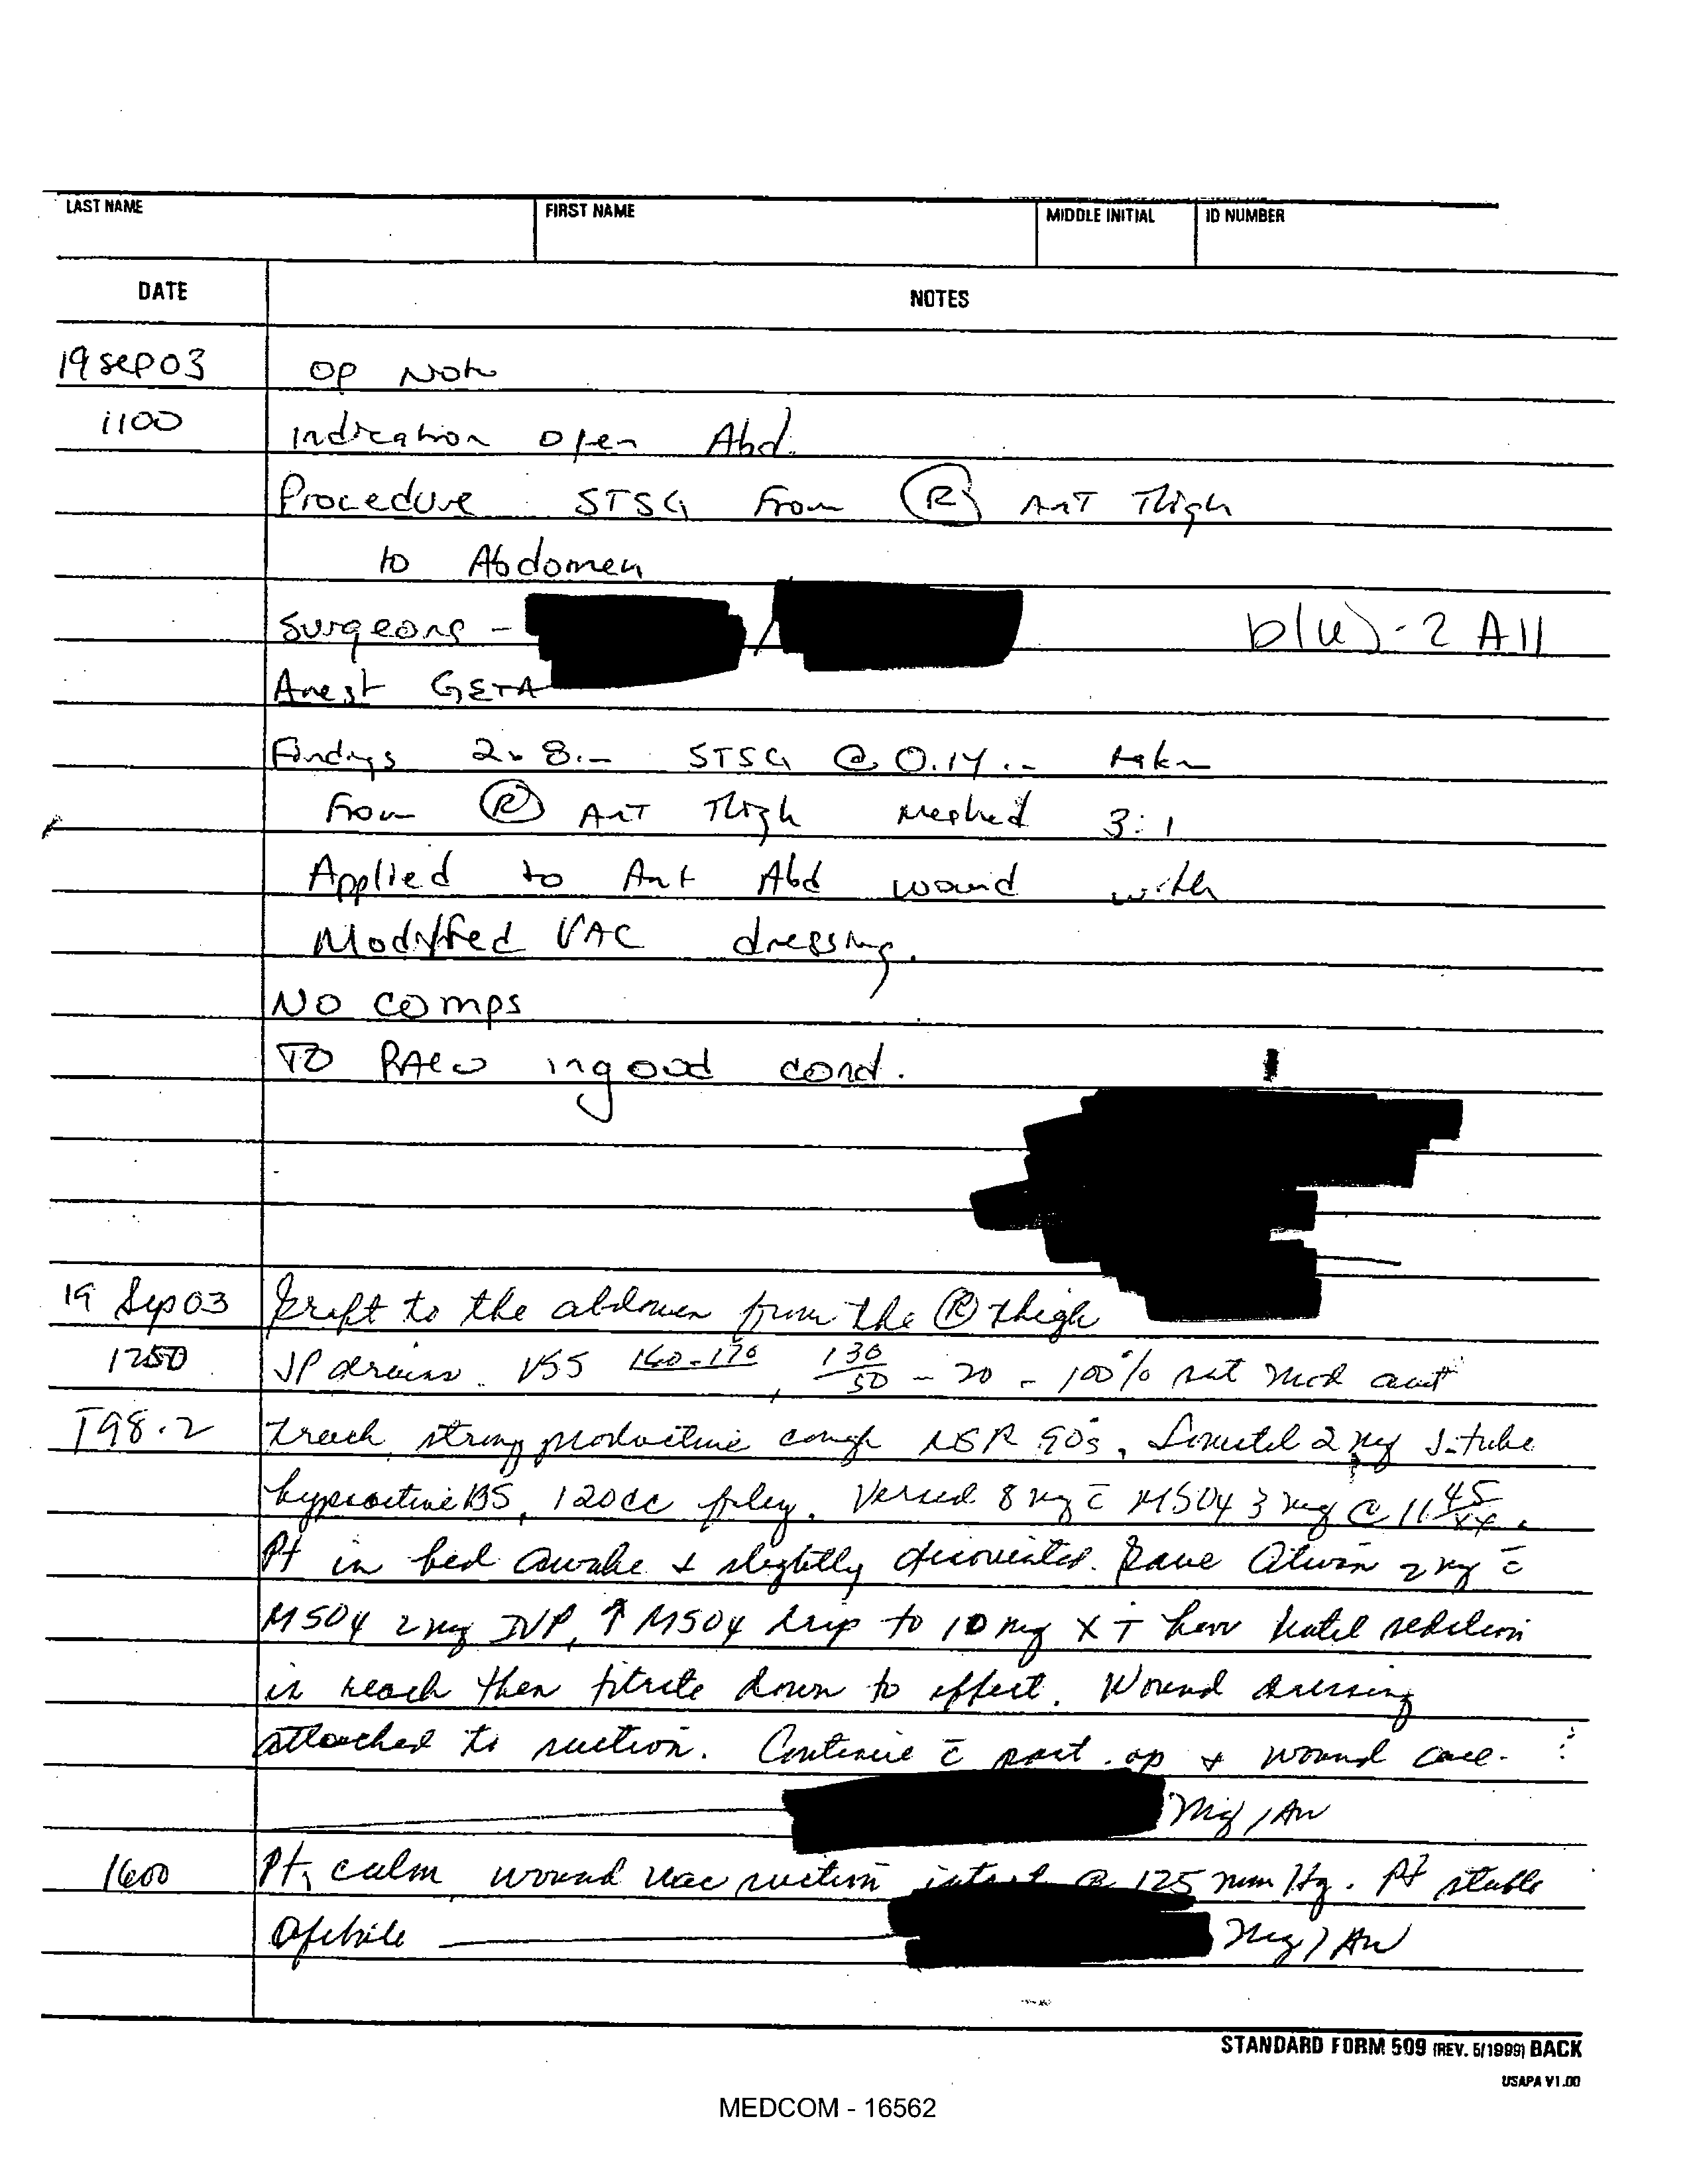 LAST NAME FIRST NAME MIDDLE INITIAL ID NUMBER
DATE NOTES
19 Sep 03 Op Note
1100 Indication Open Abd.
Procedure STSG From (R) ANT Thigh
to Abdomen
Surgeons - / b(6)-2 All
Anest GETA
Findings STSG @ 0.14 taken
From (R) ANT Thigh Meshed 3:1
Applied to Ant Abd wound with
Modified VAC dressing.
No comps
TO in good cond.
19 Sep 03 Graft to the abdomen from the (R) thigh
1250 JP drains. VSS 160-170, 130/50 - 20 - 100% sat Mod amt
T98.2 trach, strong productive cough NSR 90's, 2 mg J-tube
BS, 120cc foley. Versed 8 mg c̄ MSO4 3 mg @ 1145
Pt in bed awake & slightly disoriented. Gave Ativan 2 mg c̄
MSO4 2 mg IVP, ↑ MSO4 drip to 10 mg X i hour until sedation
is reach then titrate down to effect. Wound dressing
attached to suction. Continue c̄ post-op & wound care.
Maj / AN
1600 Pt, calm wound vac suction intact @ 125 mm Hg. Pt stable
Afebrile Maj / AN
STANDARD FORM 509 (REV. 5/1999) BACK
USAPA V1.00
MEDCOM - 16562